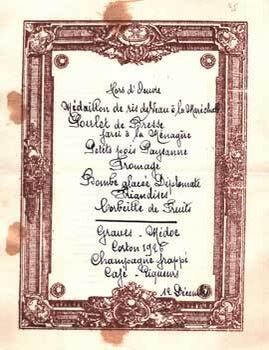 Hors d'Œuvre
Médaillon de ris de Veau à la Maréchale
Poulet de Bresse
farci à la Ménagère
Petits pois Paysanne
Fromage
Bombe glacée Diplomate
Friandises
Corbeille de Fruits
Graves - Médoc
Corton
Champagne frappé
Café - Liqueurs